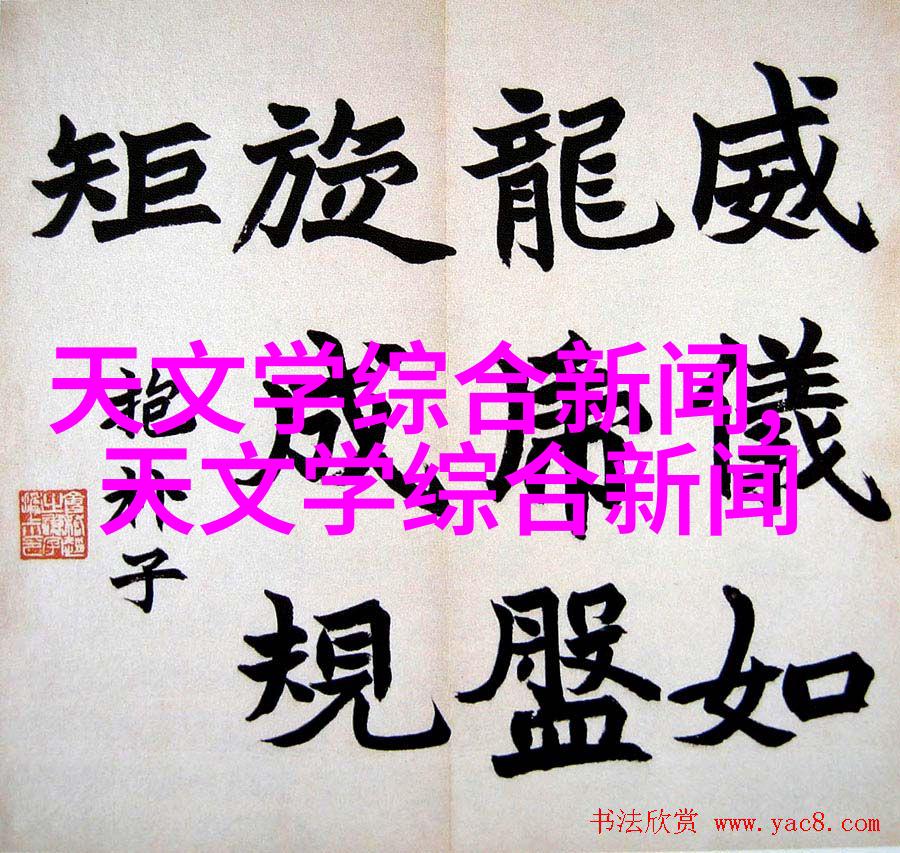 威儀如
龍盤
旋成規
矩
抱朴子
天文学综合新闻,
天文学综合新闻
书法欣赏 www.yac8.com